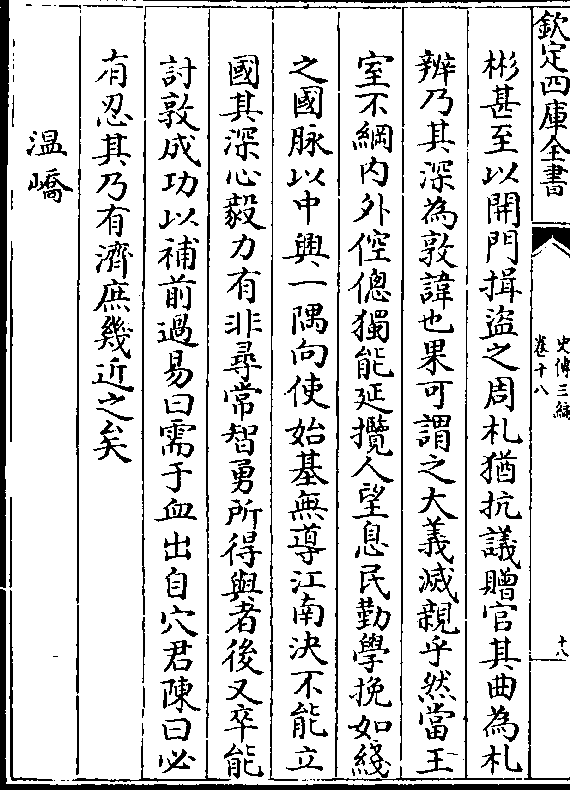 欽定四庫全書
史傳三編
卷十八
十八
彬甚至以開門揖盜之周札猶抗議贈官其曲為札
辨乃其深為敦諱也果可謂之大義滅親乎然當王
室不綱内外倥傯獨能延攬人望息民勤學挽如綫
之國脉以中興一隅向使始基無導江南決不能立
國其深心毅力有非尋常智勇所得與者後又卒能
討敦成功以補前過易曰需于血出自穴君陳曰必
有忍其乃有濟庶幾近之矣
温嶠